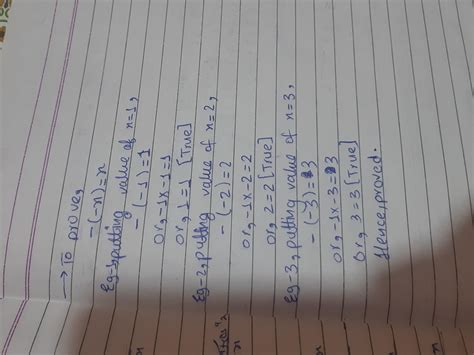 → To prove,
-(-n)=n
Eg-1, putting value of n=1,
-(-1)=1
or, -1x-1=1
or, 1=1 [True]
Eg-2, putting value of n=2,
-(-2)=2
or, -1x-2=2
or, 2=2 [True]
Eg-3, putting value of n=3,
-(-3)=3
or, -1x-3=3
or, 3=3 [True]
Hence, proved.